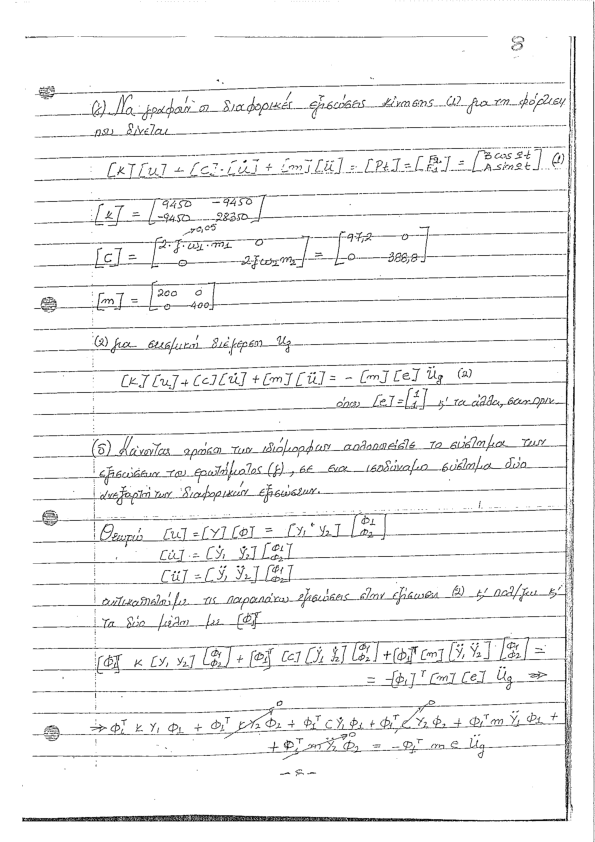 8
(γ) Να γραφούν οι διαφορικές εξισώσεις κίνησης (1) για τη φόρτιση
που δίνεται
[K][u] + [C]·[u̇] + [m][ü] = [Pt] = [F2 F1] = [BcosΩt AsinΩt] (1)
[K] = [9450 -9450 -9450 28350]
→0,05
[C] = [2·ζ·ω1·m1 0 0 2ζω1m2] = [97,2 0 0 388,8]
[m] = [200 0 0 400]
(2) για σεισμική διέγερση Ug
[K][u] + [C][u̇] + [m][ü] = - [m][e] üg (2)
όπου [e] = [1 1] κ' τα άλλα, σαν πριν
(δ) Κάνοντας χρήση των ιδιόμορφων απλοποιείστε το σύστημα των
εξισώσεων του ερωτήματος (γ), σε ένα ισοδύναμο σύστημα δύο
ανεξαρτήτων διαφορικών εξισώσεων.
Θεωρώ [u] = [Y][Φ] = [Y1 Y2] [Φ1 Φ2]
[u̇] = [Ẏ1 Ẏ2] [Φ1 Φ2]
[ü] = [Ÿ1 Ÿ2] [Φ1 Φ2]
αντικαθιστούμε τις παραπάνω εξισώσεις στην εξίσωση (2) κ' πολ/ζω κ'
τα δύο μέλη με [Φ1]ᵀ
[Φ1]ᵀ K [Y1 Y2] [Φ1 Φ2] + [Φ1]ᵀ [C] [Ẏ1 Ẏ2] [Φ1 Φ2] + [Φ1]ᵀ [m] [Ÿ1 Ÿ2]·[Φ1 Φ2] =
= -[Φ1]ᵀ [m] [e] Üg ⇒
⇒ Φ1ᵀ K Y1 Φ1 + Φ1ᵀ K Y2 Φ2 + Φ1ᵀ C Ẏ1 Φ1 + Φ1ᵀ C Ẏ2 Φ2 + Φ1ᵀ m Ÿ1 Φ1 +
+ Φ1ᵀ m Ÿ2 Φ2 = -Φ1ᵀ m e Üg